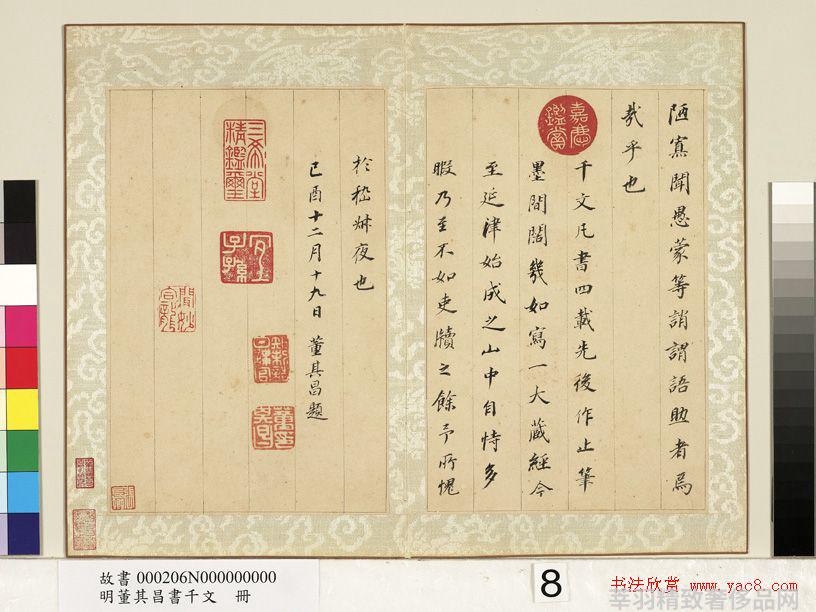 陋寡聞愚蒙等誚謂語助者焉
哉乎也
千文凡書四載先後作止筆
墨間闊幾如寫一大藏經今
至延津始成之山中自恃多
暇乃至不如吏牘之餘予所愧
於嵇
夜也
己酉十二月十九日 董其昌題
嘉慶鑑賞
三希堂精鑑璽
宜子孫
故書 000206N000000000
明董其昌書千文 冊
8
书法欣赏 www.yac8.com
幸羽精致奢侈品网